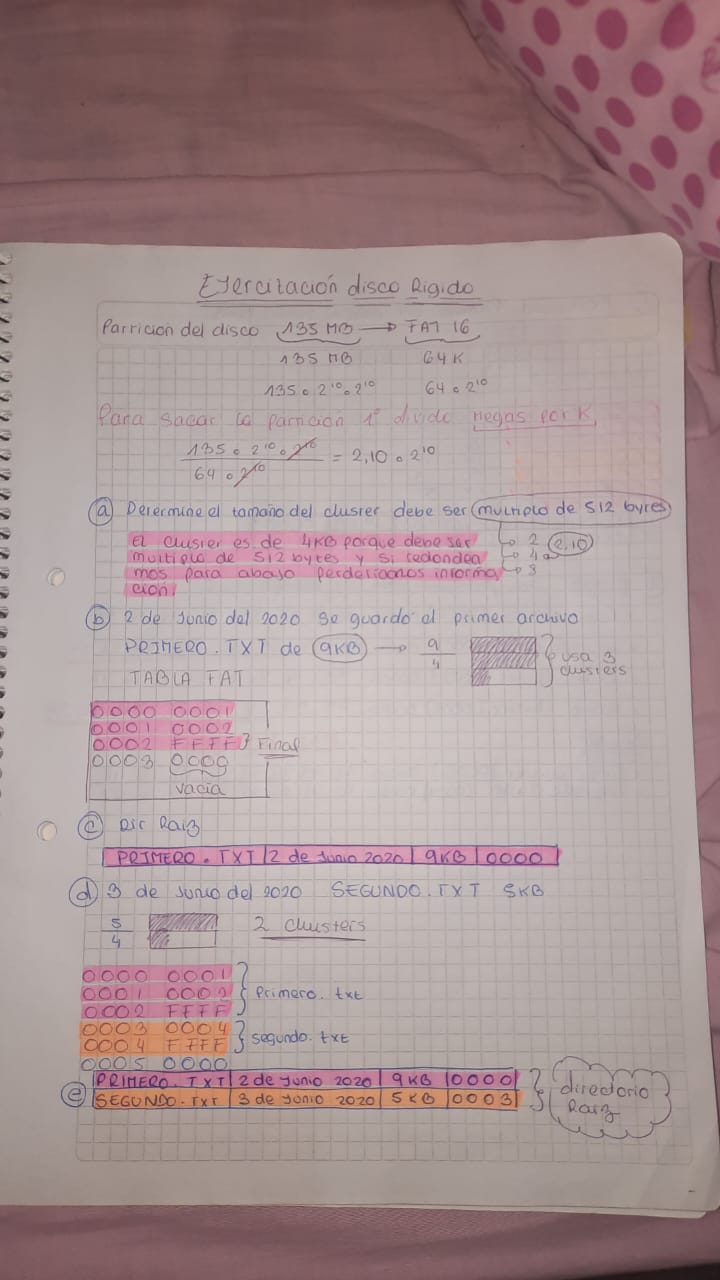 Ejercitación disco Rigido
Partición del disco 135 MB → FAT 16
135 MB 64K
135 . 2¹⁰ . 2¹⁰ 64 . 2¹⁰
Para sacar la partición 1° divide Megas por K
135 . 2¹⁰ . 2¹⁰ / 64 . 2¹⁰ = 2,10 . 2¹⁰
a) Determine el tamaño del cluster debe ser (multiplo de 512 bytes)
El cluster es de 4KB porque debe ser → 2 (2,10)
multiplo de 512 bytes y si redondea → 4
mos para abajo perderiamos informa → 8
ción
b) 2 de Junio del 2020 se guardo el primer archivo
PRIMERO.TXT de (9KB) → 9/4 } usa 3 clusters
TABLA FAT
0000 0001
0001 0002
0002 FFFF } Final
0003 0000
vacia
c) Dir Raiz
PRIMERO.TXT | 2 de Junio 2020 | 9KB | 0000
d) 3 de Junio del 2020 SEGUNDO.TXT 5KB
5/4 2 clusters
0000 0001
0001 0002 } Primero.txt
0002 FFFF
0003 0004 } segundo.txt
0004 FFFF
0005 0000
PRIMERO.TXT | 2 de Junio 2020 | 9KB | 0000 } directorio
e) SEGUNDO.TXT | 3 de Junio 2020 | 5KB | 0003 Raiz